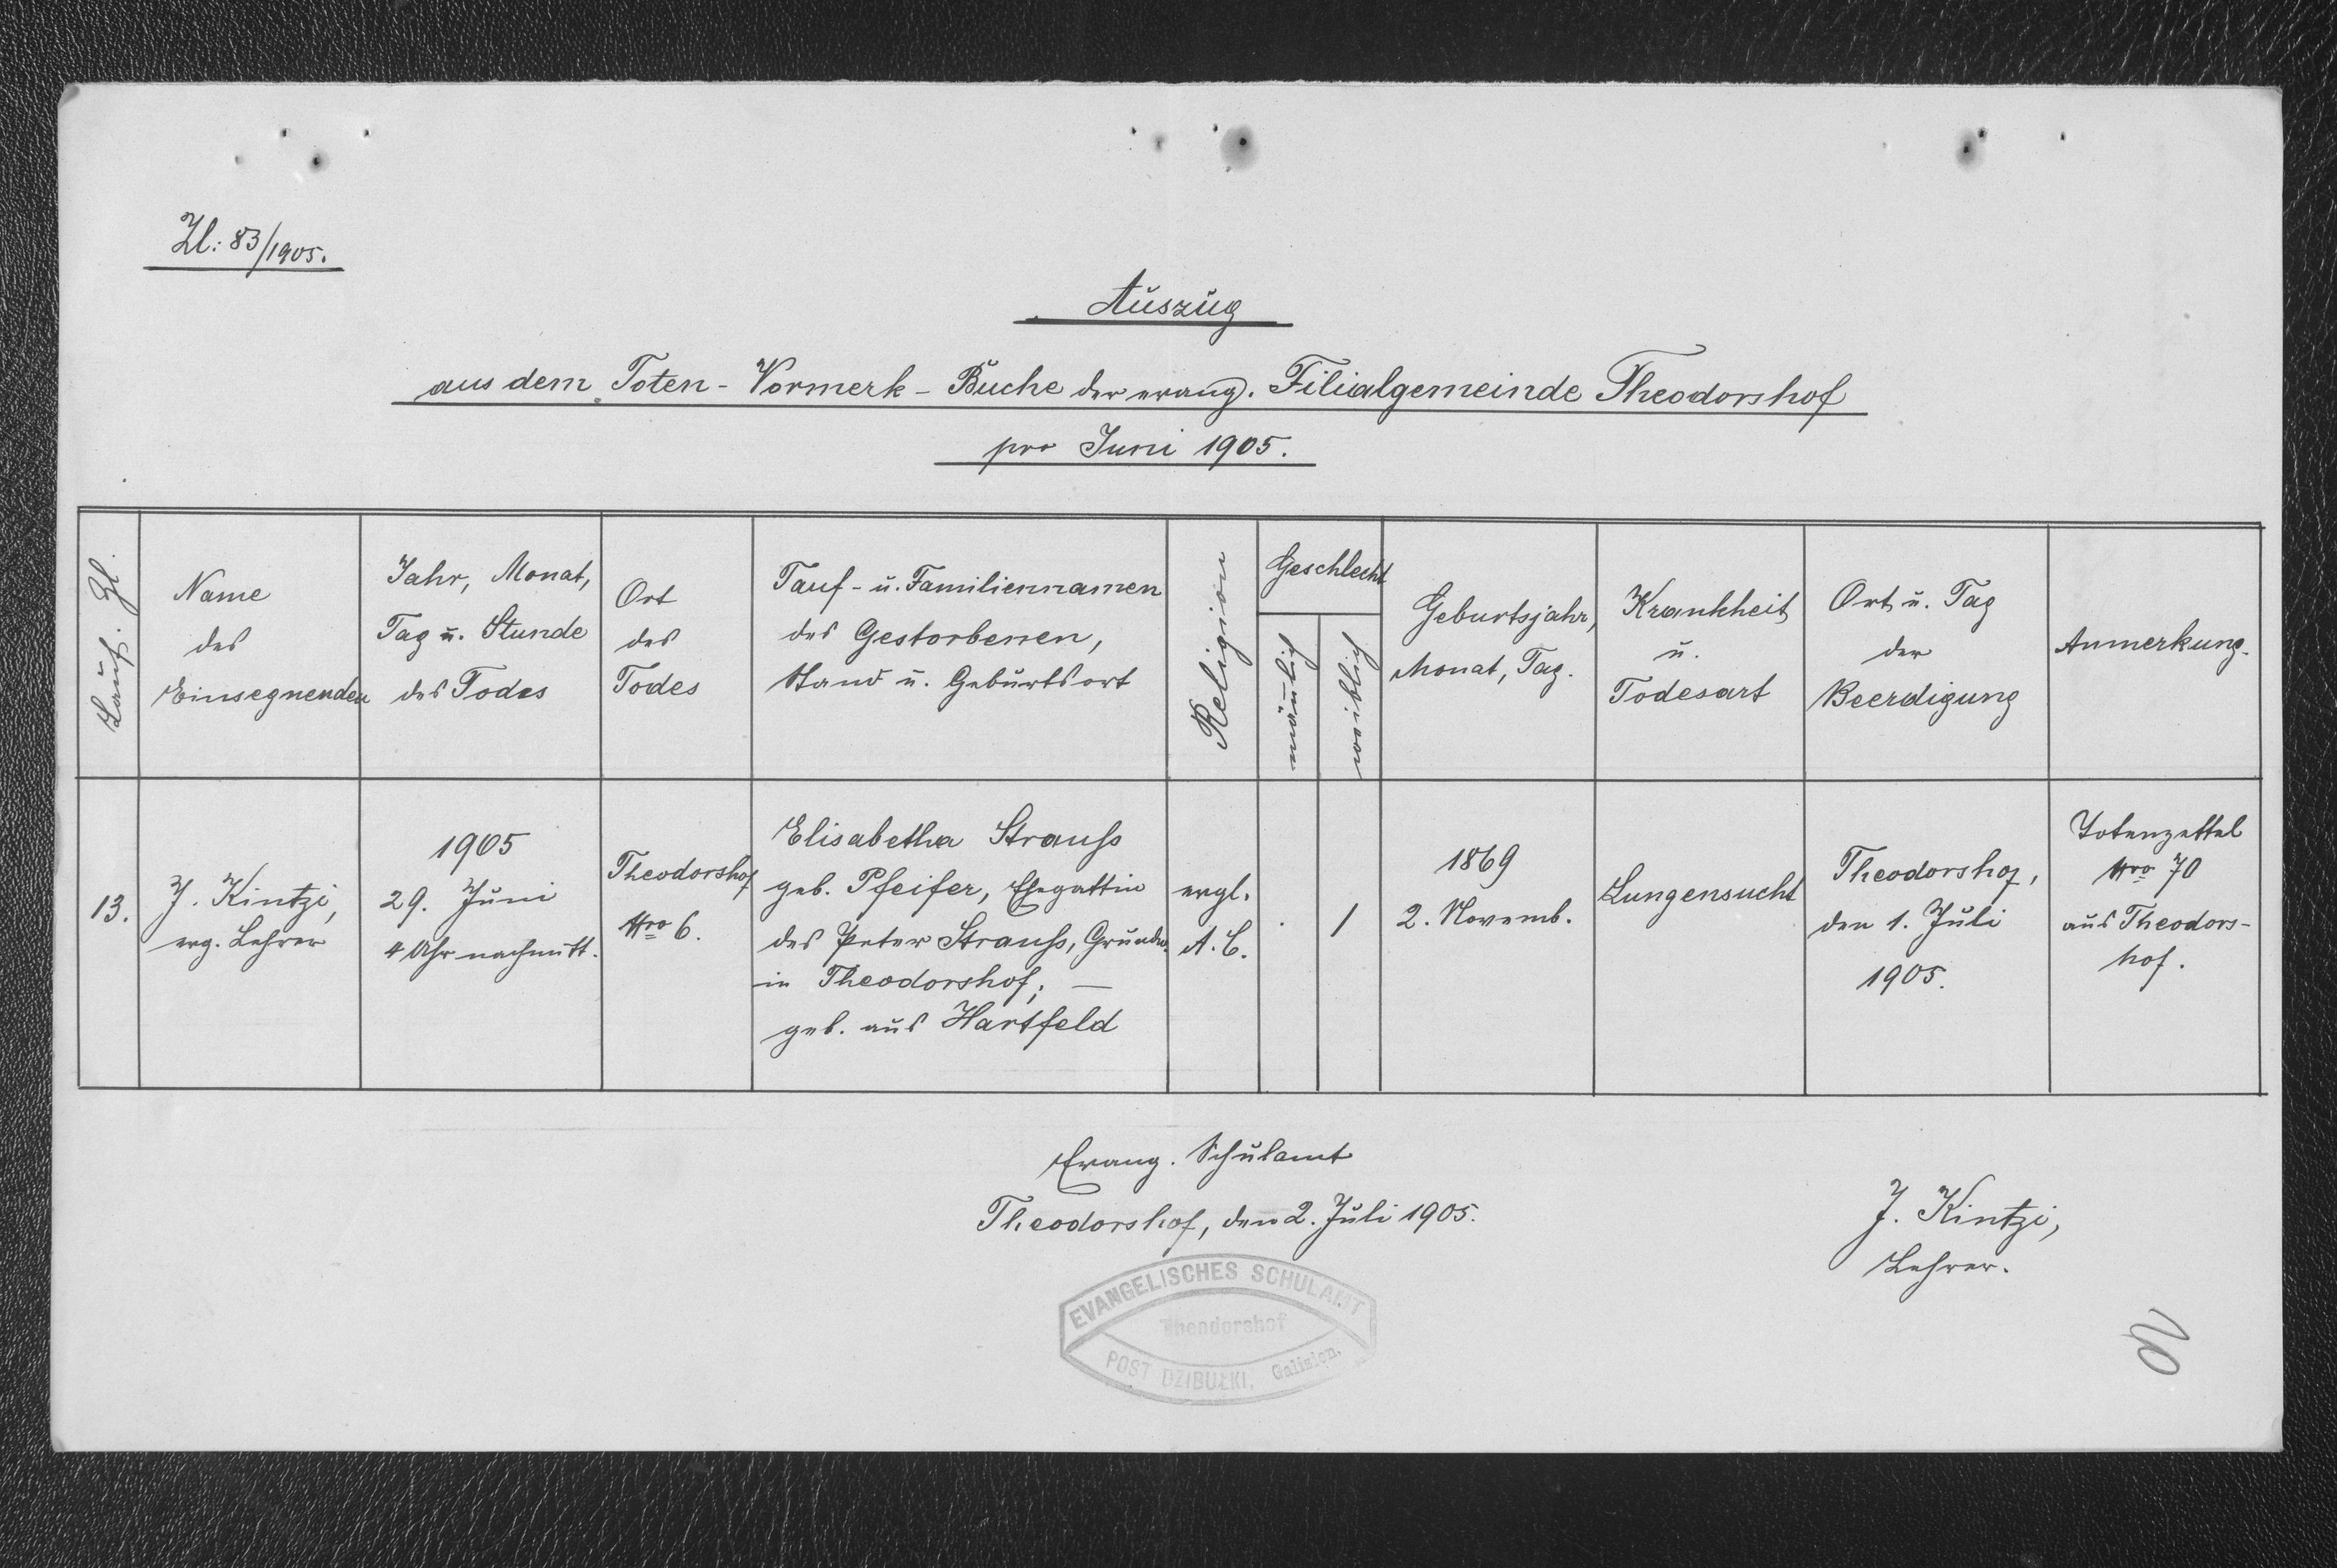 Zl: 83/1905.
Auszug
aus dem Toten-Vormerk-Buche der evang. Filialgemeinde Theodorshof
pro Juni 1905.
Lauf. Zl.
Name
des
Einsegnenden
Jahr, Monat,
Tag u. Stunde
des Todes
Ort
des
Todes
Tauf- u. Familiennamen
des Gestorbenen,
Stand u. Geburtsort
Religion
Geschlecht
mänlich
weiblich
Geburtsjahr,
Monat, Tag.
Krankheit
u.
Todesart
Ort u. Tag
der
Beerdigung
Anmerkung.
13.
J. Kintzi,
evg. Lehrer
1905
29. Juni
4 Uhr nachmitt.
Theodorshof
Nro 6.
Elisabetha Strauß
geb. Pfeifer, Ehegattin
des Peter Strauß, Grundw.
in Theodorshof; —
geb. aus Hartfeld
evgl.
A. C.
.
1
1869
2. Novemb.
Lungensucht
Theodorshof,
den 1. Juli
1905.
Totenzettel
Nro 70
aus Theodors-
hof.
Evang. Schulamt
Theodorshof, den 2. Juli 1905.
J. Kintzi,
Lehrer.
EVANGELISCHES SCHULAMT
Theodorshof
POST DZIBUŁKI, Galizien.